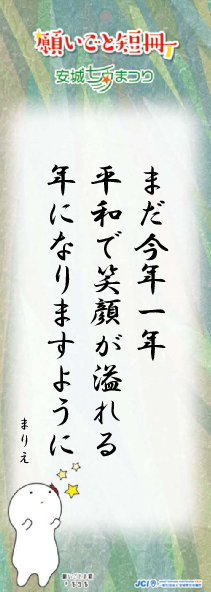 願いごと短冊
安城七夕まつり
まだ今年一年
平和で笑顔が溢れる
年になりますように
まりえ
JCI